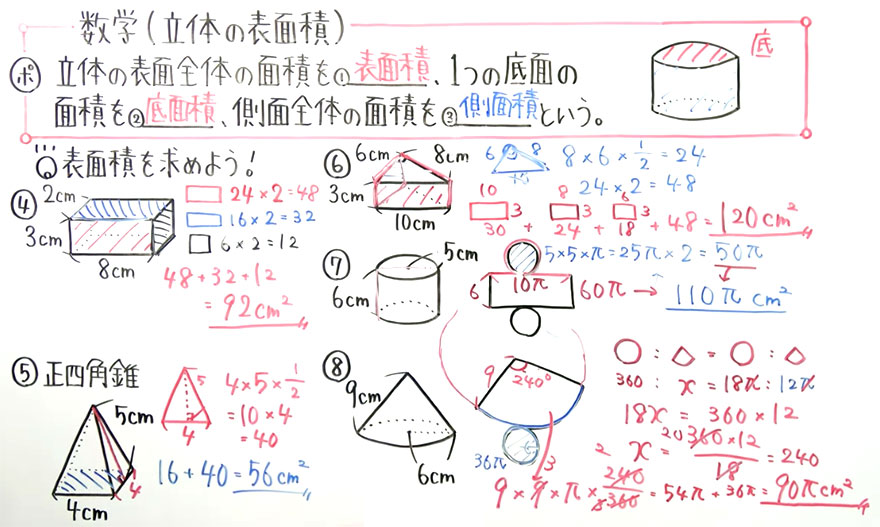 数学(立体の表面積)
ポ 立体の表面全体の面積を①表面積、1つの底面の
面積を②底面積、側面全体の面積を③側面積という。
底
表面積を求めよう!
④
2cm
3cm
8cm
24×2=48
16×2=32
6×2=12
48+32+12
=92cm²
⑤正四角錐
5cm
4
4cm
5
4
4×5×1/2
=10×4
=40
16+40=56cm²
⑥
6cm
8cm
3cm
10cm
6
8
10
8×6×1/2=24
24×2=48
10
3
8
3
6
3
30 + 24 + 18 + 48 = 120cm²
⑦
5cm
6cm
5×5×π=25π×2=50π
6
10π
60π→110πcm²
⑧
9cm
6cm
9
240°
36π
3
360:x=18π:12π
18x=360×12
x=360×12/18=240
20
2
9×9×π×240/360=54π+36π=90πcm²